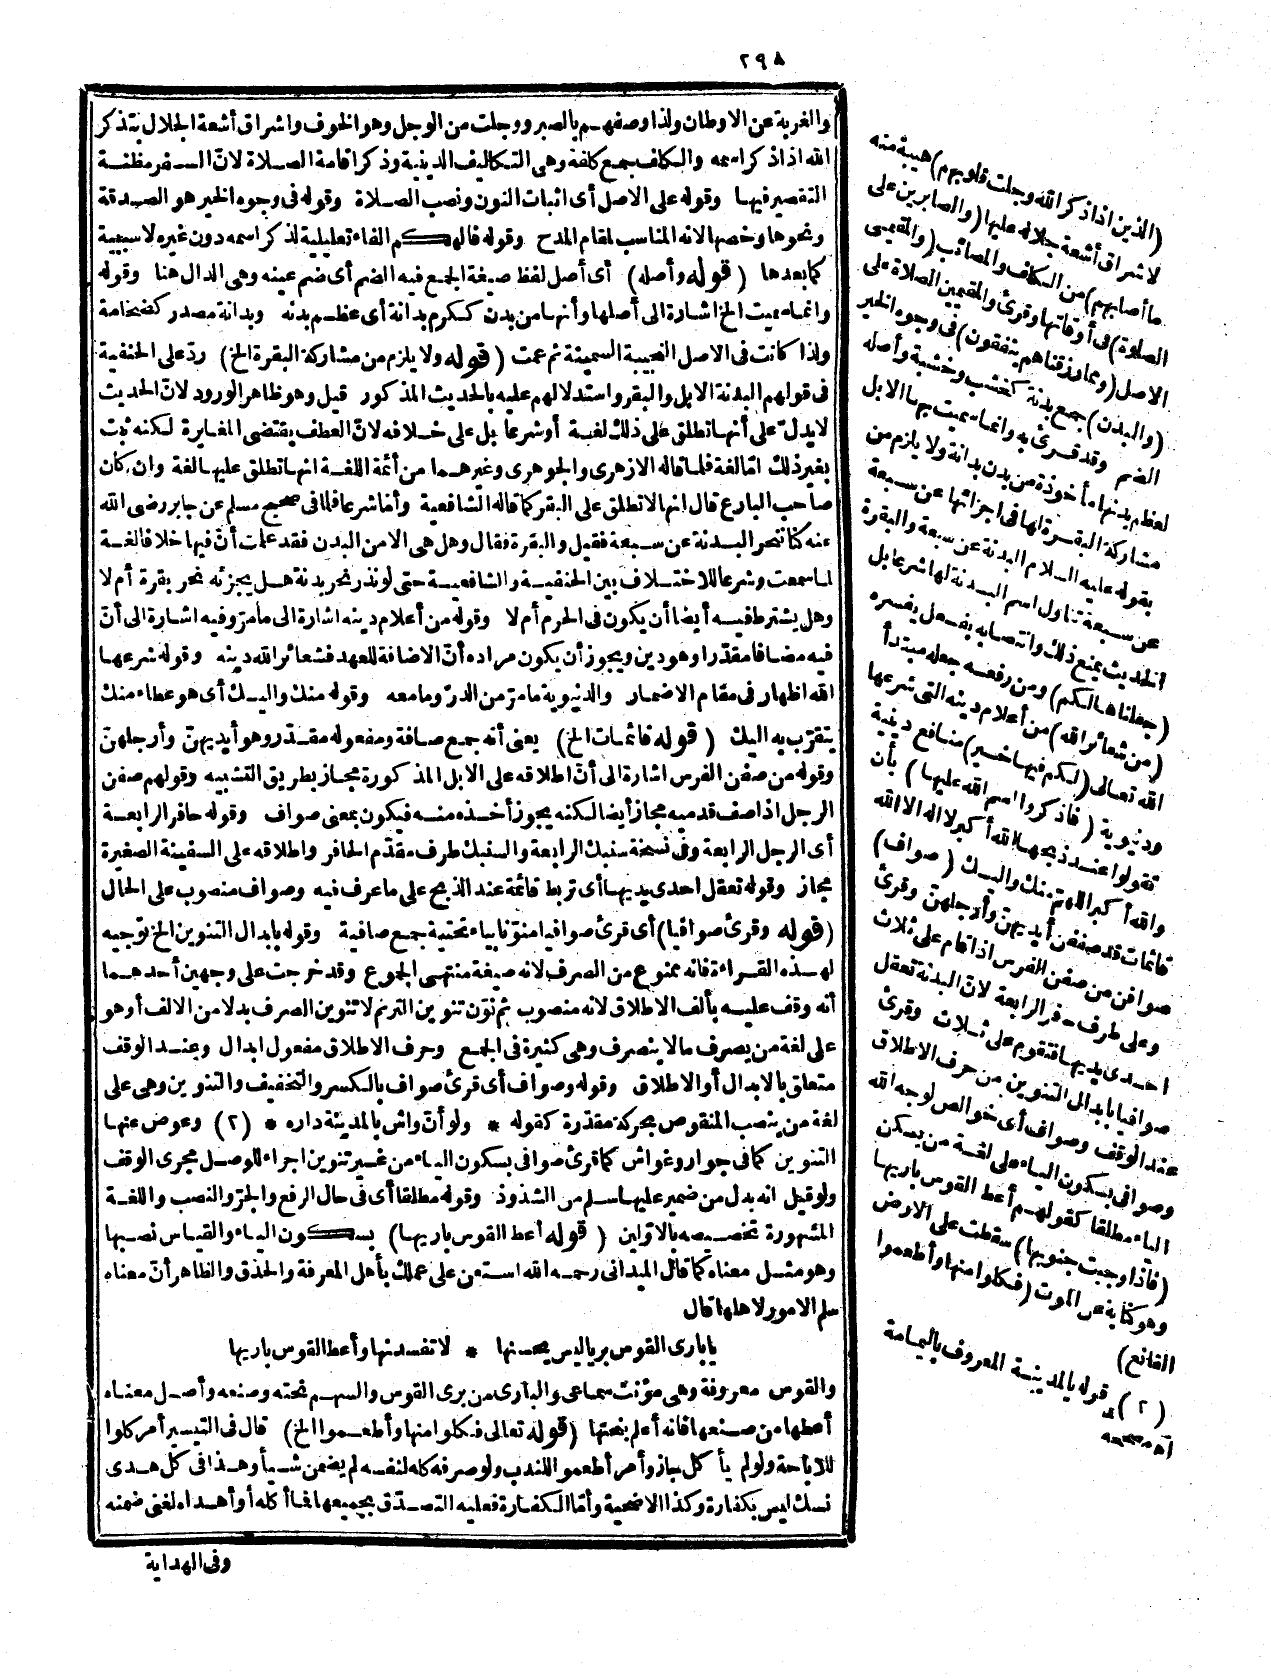 ٢٩٨
والغربة عن الاوطان ولذا وصفهم بالصبر ووجلت من الوجل وهو الخوف واشراق أشعة الجلال بتذكر
الله اذا ذكر اسمه والكاف جمع كلفة وهي التكاليف الدينية وذكر اقامة الصلاة لانّ السفر مظنة
التقصير فيها وقوله على الاصل أى اثبات النون ونصب الصلاة وقوله فى وجوه الخير هو الصدقة
ونحوها وخصها لانه المناسب لمقام المدح وقوله فالهكم الفاء تعليلية لذكر اسمه دون غيره لا سببية
كما بعدها (قوله وأصله) أى أصل لفظ صيغة الجمع فيه الضم أى ضم عينه وهى الدال هنا وقوله
وانما سميت الخ اشارة الى أصلها وأنها من بدن ككرم بدانة أى عظم بدنه وبدانة مصدر كضخامة
ولذا كانت فى الاصل النجيبة السمينة ثم عمت (قوله ولا يلزم من مشاركة البقرة الخ) ردّ على الحنفية
فى قولهم البدنة الابل والبقر واستدلالهم عليه بالحديث المذكور قيل وهو ظاهر الورود لانّ الحديث
لا يدلّ على أنها تطلق على ذلك لغة أو شرعا بل على خلافه لانّ العطف يقتضى المغايرة لكنه ثبت
بغير ذلك امّا لغة فلما قاله الازهرى والجوهرى وغيرهما من أئمة اللغة انها تطلق عليها لغة وان كان
صاحب البارع قال انها لا تطلق على البقر كما قاله الشافعية وأما شرعا فلما فى صحيح مسلم عن جابر رضى الله
عنه كنا ننحر البدنة عن سبعة فقيل والبقرة فقال وهل هى الا من البدن فقد علمت أنّ فيها خلافا لغة
لما سمعت وشرعا للاختلاف بين الحنفية والشافعية حتى لو نذر نحر بدنة هل يجزئه نحر بقرة أم لا
وهل يشترط فيه أيضا أن يكون فى الحرم أم لا وقوله من أعلام دينه اشارة الى ما مرّ وفيه اشارة الى أنّ
فيه مضافا مقدّرا وهو دين ويجوز أن يكون مراده أنّ الاضافة للعهد فشعائر الله دينه وقوله شرعها
الله اظهار فى مقام الاضمار والدنيوية ما مرّ من الدرّ وما معه وقوله منك واليك أى هو عطاء منك
يتقرّب به اليك (قوله قائمات الخ) يعنى أنه جمع صافة ومفعوله مقدّر وهو أيديهنّ وأرجلهنّ
وقوله من صفن الفرس اشارة الى أنّ اطلاقه على الابل المذكورة مجاز بطريق التشبيه وقولهم صفن
الرجل اذا صف قدميه مجاز أيضا لكنه يجوز أخذه منه فيكون بمعنى صواف وقوله حافر الرابعة
أى الرجل الرابعة وفى نسخة سنبك الرابعة والسنبك طرف مقدّم الحافر واطلاقه على السفينة الصغيرة
مجاز وقوله تعقل احدى يديها أى تربط قائمة عند الذبح على ما عرف فيه وصواف منصوب على الحال
(قوله وقرئ صوافيا) أى قرئ صوافيا منوّنا بياء تحتية جمع صافية وقوله بابدال التنوين الخ توجيه
لهذه القراءة فانه ممنوع من الصرف لانه صيغة منتهى الجموع وقد خرجت على وجهين أحدهما
أنه وقف عليه بألف الاطلاق لانه منصوب ثم نوّن تنوين الترنم لا تنوين الصرف بدلا من الالف أو هو
على لغة من يصرف ما لا ينصرف وهى كثيرة فى الجمع وحرف الاطلاق مفعول ابدال وعند الوقف
متعلق بالابدال أو الاطلاق وقوله وصواف أى قرئ صواف بالكسر والتخفيف والتنوين وهى على
لغة من ينصب المنقوص بحركة مقدّرة كقوله * ولو أنّ واش بالمدينة داره * (٢) وعوض عنها
التنوين كما فى جوار وغواش كما قرئ صوافى بسكون الياء من غير تنوين اجراء للوصل مجرى الوقف
ولو قيل انه بدل من ضمير عليها سلم من الشذوذ وقوله مطلقا أى فى حال الرفع والجرّ والنصب واللغة
المشهورة تخصيصه بالاوّلين (قوله أعط القوس باريها) بسكون الياء والقياس نصبها
وهو مثل معناه كما قال الميدانى رحمه الله استعن على عملك بأهل المعرفة والحذق والظاهر أنّ معناه
سلم الامور لاهلها قال
يا بارى القوس بريا ليس يحسنها * لا تفسدنها وأعط القوس باريها
والقوس معروفة وهى مؤنث سماعى والبارى من برى القوس والسهم نحته وصنعه وأصل معناه
أعطها من صنعها فانه أعلم بنحتها (قوله تعالى فكلوا منها وأطعموا الخ) قال فى التيسير أمر كلوا
للاباحة ولو لم يأكل جاز وأمر أطعموا للندب ولو صرفه كله لنفسه لم يضمن شيأ وهذا فى كل هدى
نسك ليس بكفارة وكذا الاضحية وأمّا الكفارة فعليه التصدّق بجميعها فما أكله أو أهداه لغنى ضمنه
وفى الهداية
(الذين اذا ذكر الله وجلت قلوبهم) هيبة منه
لاشراق أشعة جلاله عليها (والصابرين على
ما أصابهم) من الكلف والمصائب (والمقيمى
الصلاة) فى أوقاتها وقرئ والمقيمين الصلاة على
الاصل (ومما رزقناهم ينفقون) فى وجوه الخير
(والبدن) جمع بدنة كخشب وخشبة وأصله
الضم وقد قرئ به وانما سميت بها الابل
لعظم بدنها مأخوذة من بدن بدانة ولا يلزم من
مشاركة البقرة لها فى اجزائها عن سبعة
بقوله عليه السلام البدنة عن سبعة والبقرة
عن سبعة تناول اسم البدنة لها شرعا بل
الحديث يمنع ذلك وانتصابه بفعل يفسره
(جعلناها لكم) ومن رفعه جعله مبتدأ
(من شعائر الله) من أعلام دينه التى شرعها
الله تعالى (لكم فيها خير) منافع دينية
ودنيوية (فاذكروا اسم الله عليها) بأن
تقولوا عند ذبحها الله أكبر لا اله الا الله
والله أكبر اللهمّ منك واليك (صواف)
قائمات قد صففن أيديهنّ وأرجلهنّ وقرئ
صوافن من صفن الفرس اذا قام على ثلاث
وعلى طرف حافر الرابعة لانّ البدنة تعقل
احدى يديها فتقوم على ثلاث وقرئ
صوافيا بابدال التنوين من حرف الاطلاق
عند الوقف وصواف أى خوالص لوجه الله
وصوافى بسكون الياء على لغة من يسكن
الياء مطلقا كقولهم أعط القوس باريها
(فاذا وجبت جنوبها) سقطت على الارض
وهو كناية عن الموت (فكلوا منها وأطعموا
القانع)
(٢) قوله بالمدينة المعروف باليمامة
اه مصححه